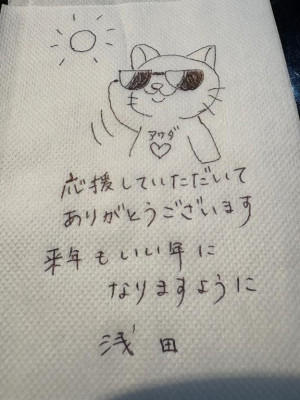 アサダ
応援していただいて
ありがとうございます
来年もいい年に
なりますように
浅田